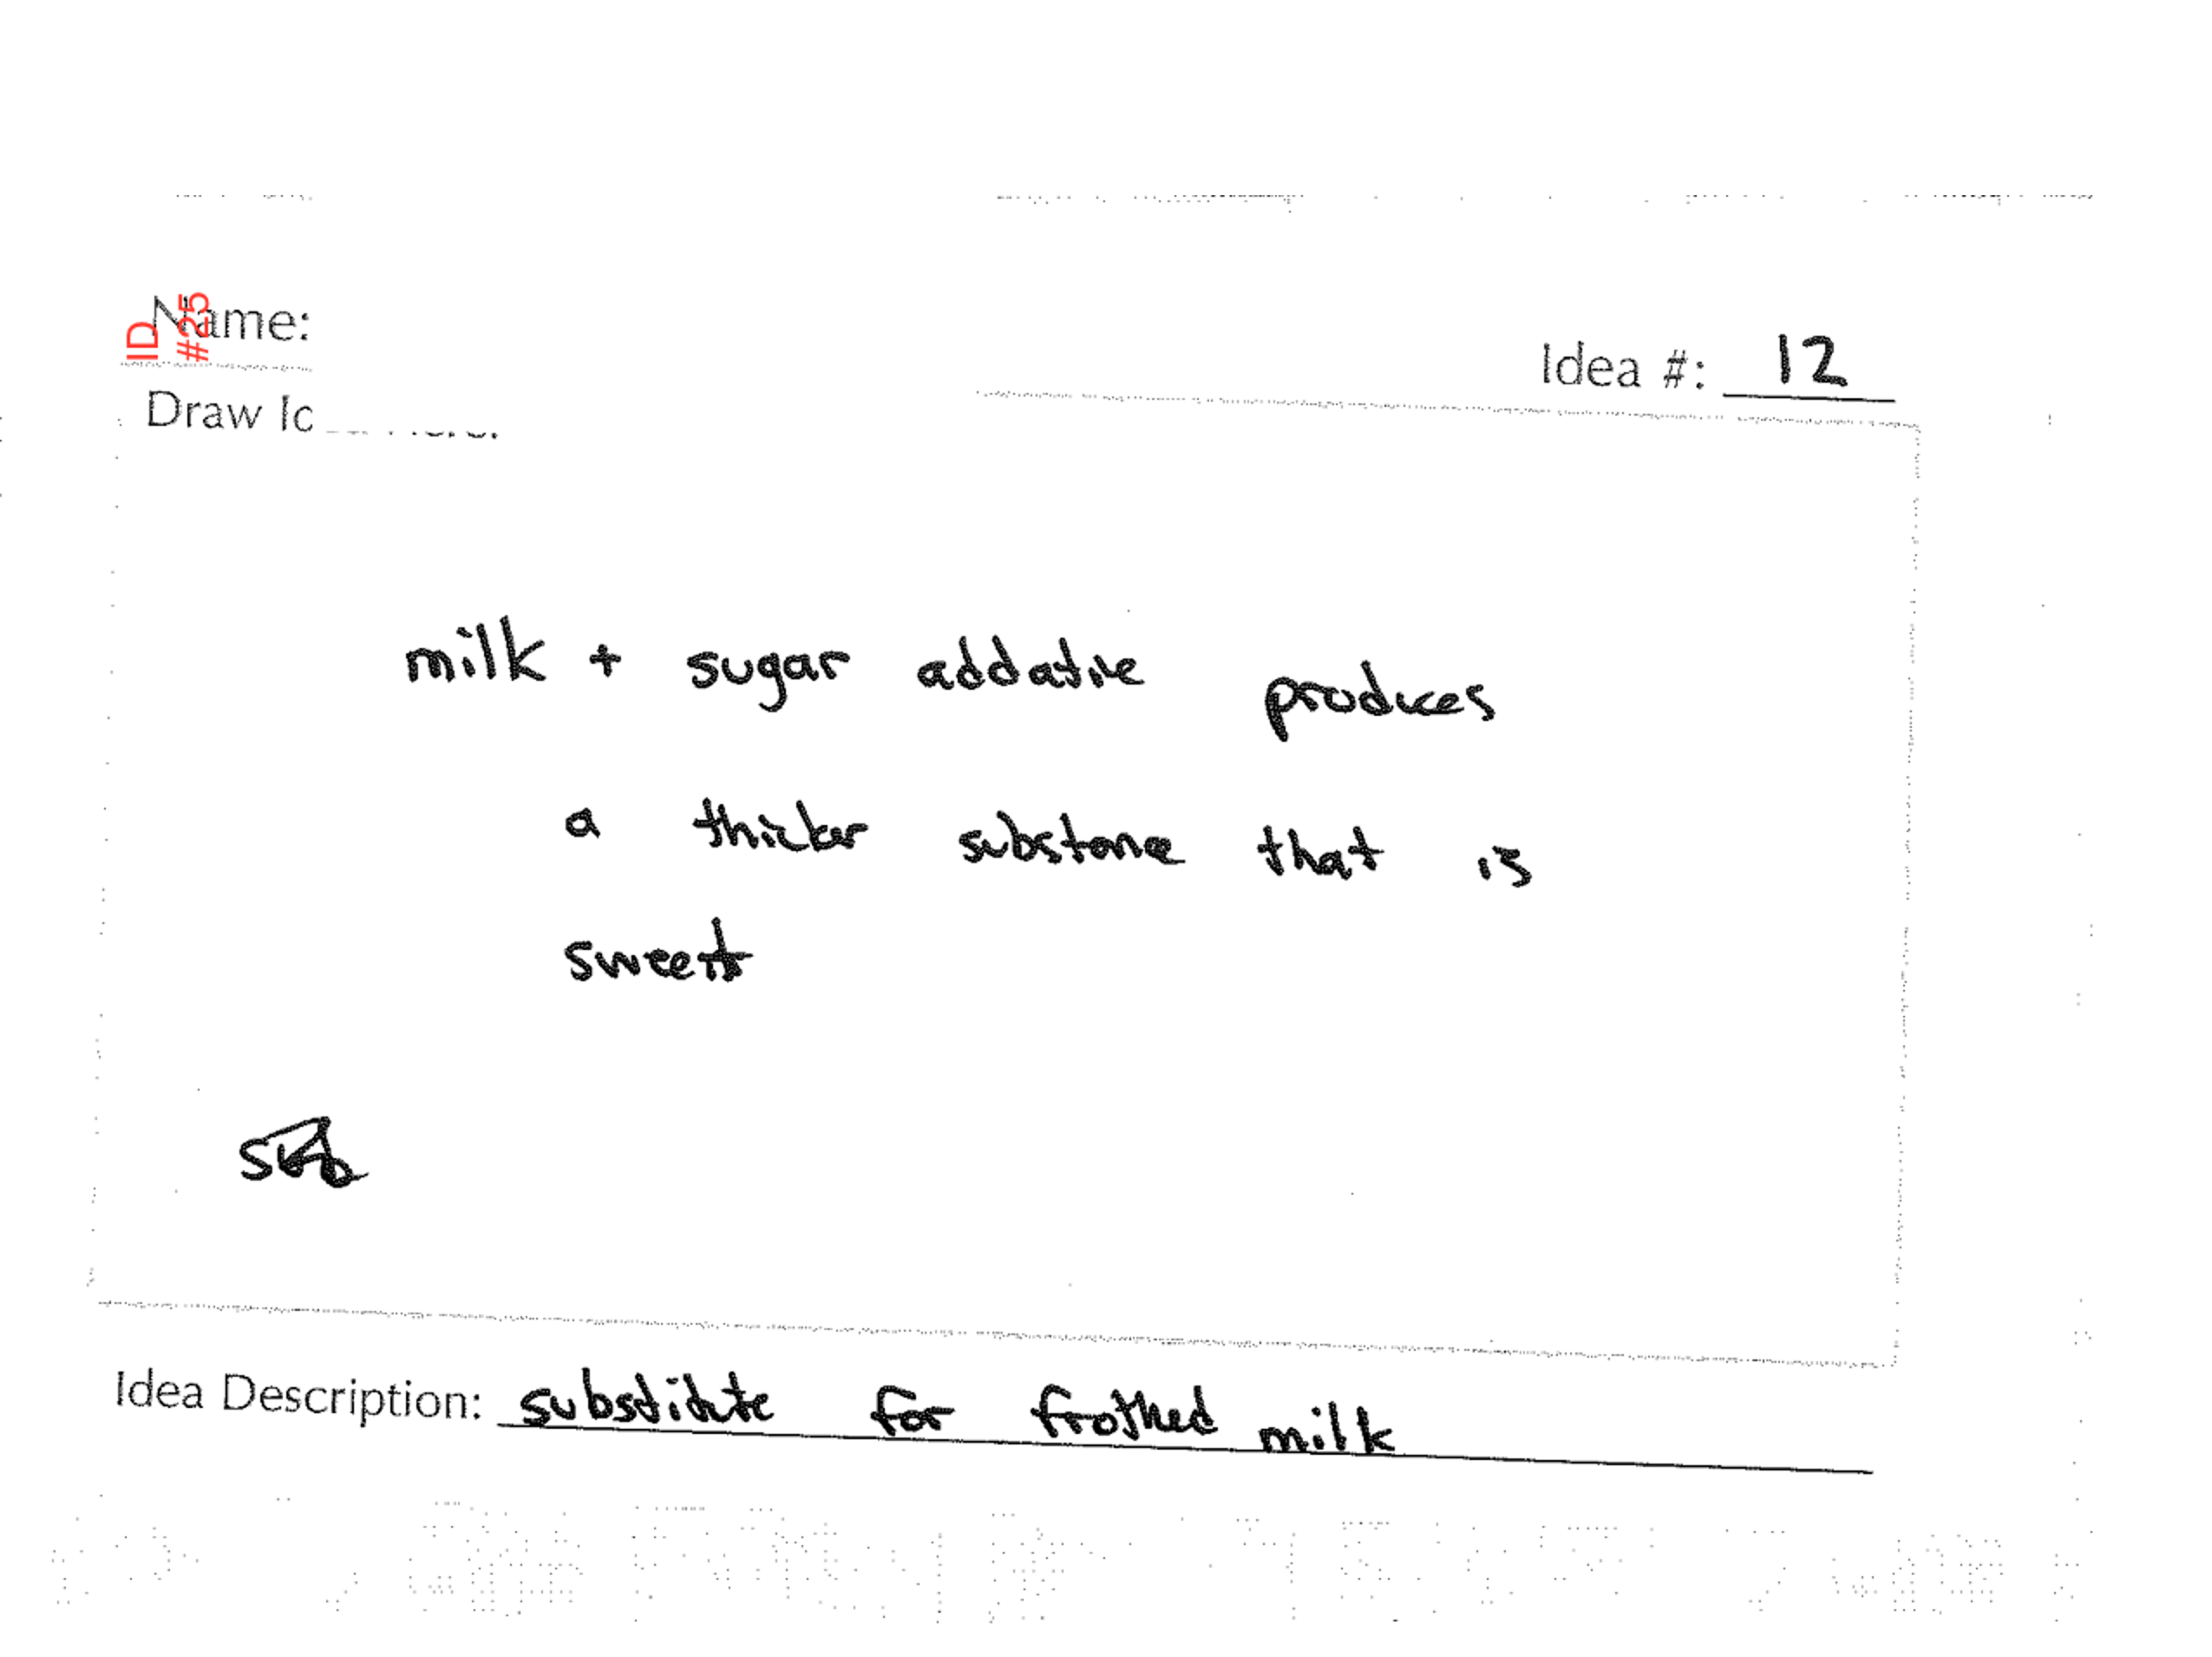 ID
#25
Name:
Idea #: 12
Draw
milk + sugar addative produces
a thicker substance that is
sweet
Idea Description: substitute for frothed milk